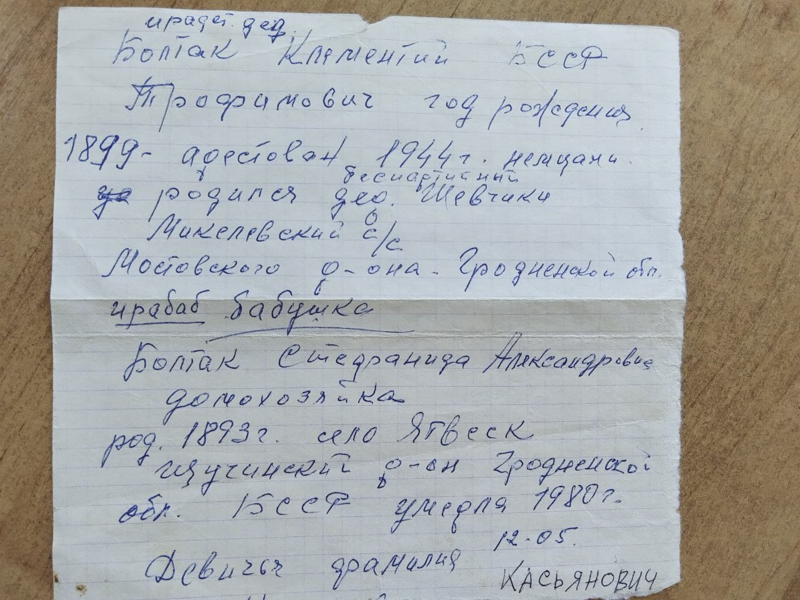 прадет. дед.
Болтак Клементий БССР
Трофимович год рождения
1899- арестован 1944г. немцами.
беспартийный
родился дер. Шевчики
Микелевский с/с
Мостовского р-она. Гродненской обл.
прабаб бабушка
Болтак Стефранида Александровна
домохозяйка
род. 1893г. село Ятвеск
Щучинский р-он Гродненской
обл. БССР умерла 1980г.
12.05.
Девичья фамилия
КАСЬЯНОВИЧ